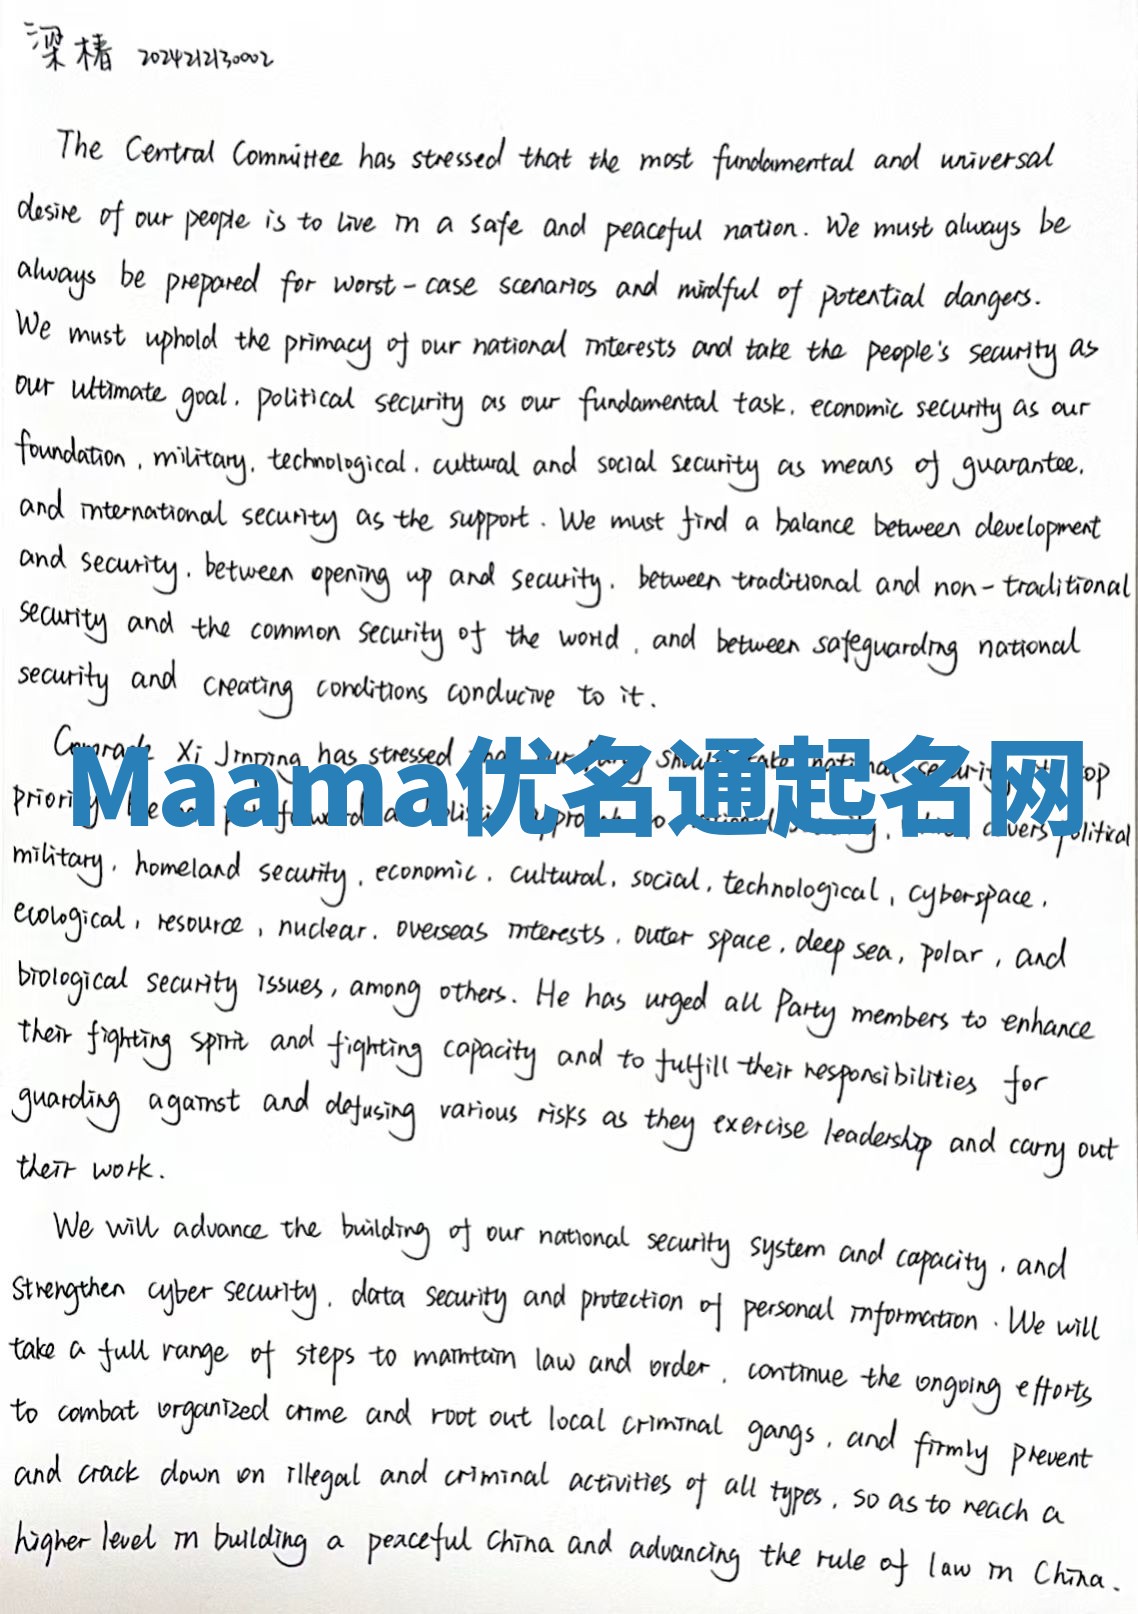 梁椿 2024212130002
The Central Committee has stressed that the most fundamental and universal
desire of our people is to live in a safe and peaceful nation. We must always be
always be prepared for worst-case scenarios and mindful of potential dangers.
We must uphold the primacy of our national interests and take the people's security as
our ultimate goal, political security as our fundamental task, economic security as our
foundation, military, technological, cultural and social security as means of guarantee,
and international security as the support. We must find a balance between development
and security, between opening up and security, between traditional and non-traditional
security and the common security of the world, and between safeguarding national
security and creating conditions conducive to it.
Comrade Xi Jinping has stressed national security top
Maama优名通起名网
priority covers political
military, homeland security, economic, cultural, social, technological, cyberspace,
ecological, resource, nuclear, overseas interests, outer space, deep sea, polar, and
biological security issues, among others. He has urged all Party members to enhance
their fighting spirit and fighting capacity and to fulfill their responsibilities for
guarding against and defusing various risks as they exercise leadership and carry out
their work.
We will advance the building of our national security system and capacity, and
strengthen cyber security, data security and protection of personal information. We will
take a full range of steps to maintain law and order, continue the ongoing efforts
to combat organized crime and root out local criminal gangs, and firmly prevent
and crack down on illegal and criminal activities of all types, so as to reach a
higher level in building a peaceful China and advancing the rule of law in China.